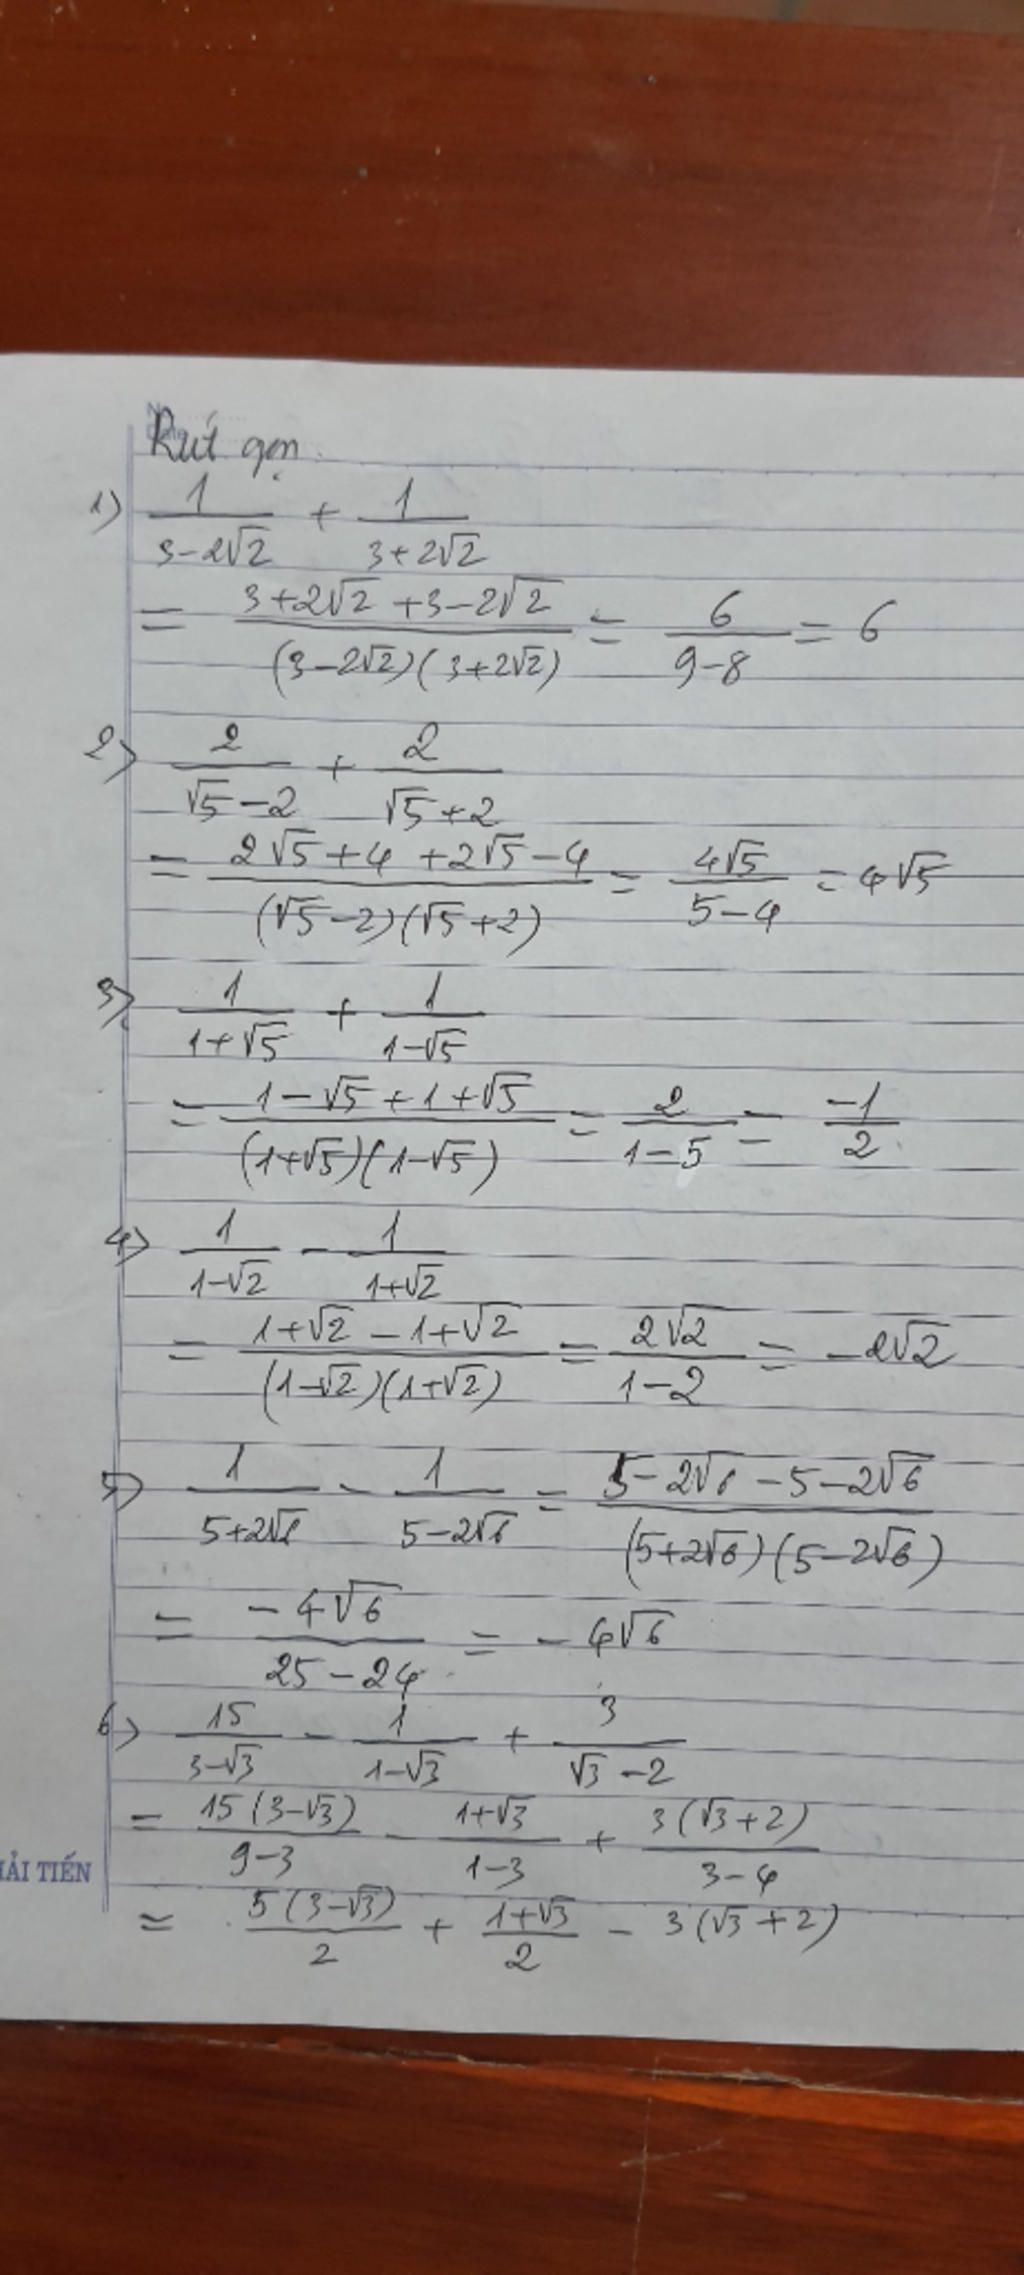 Rút gọn
1) 1/(3-2√2) + 1/(3+2√2)
= (3+2√2+3-2√2)/((3-2√2)(3+2√2)) = 6/(9-8) = 6
2) 2/(√5-2) + 2/(√5+2)
= (2√5+4+2√5-4)/((√5-2)(√5+2)) = 4√5/(5-4) = 4√5
3) 1/(1+√5) + 1/(1-√5)
= (1-√5+1+√5)/((1+√5)(1-√5)) = 2/(1-5) = -1/2
4) 1/(1-√2) - 1/(1+√2)
= (1+√2-1+√2)/((1-√2)(1+√2)) = 2√2/(1-2) = -2√2
5) 1/(5+2√6) - 1/(5-2√6) = (5-2√6-5-2√6)/((5+2√6)(5-2√6))
= -4√6/(25-24) = -4√6
6) 15/(3-√3) - 1/(1-√3) + 3/(√3-2)
= 15(3-√3)/(9-3) - (1+√3)/(1-3) + 3(√3+2)/(3-4)
= 5(3-√3)/2 + (1+√3)/2 - 3(√3+2)
ẢI TIẾN